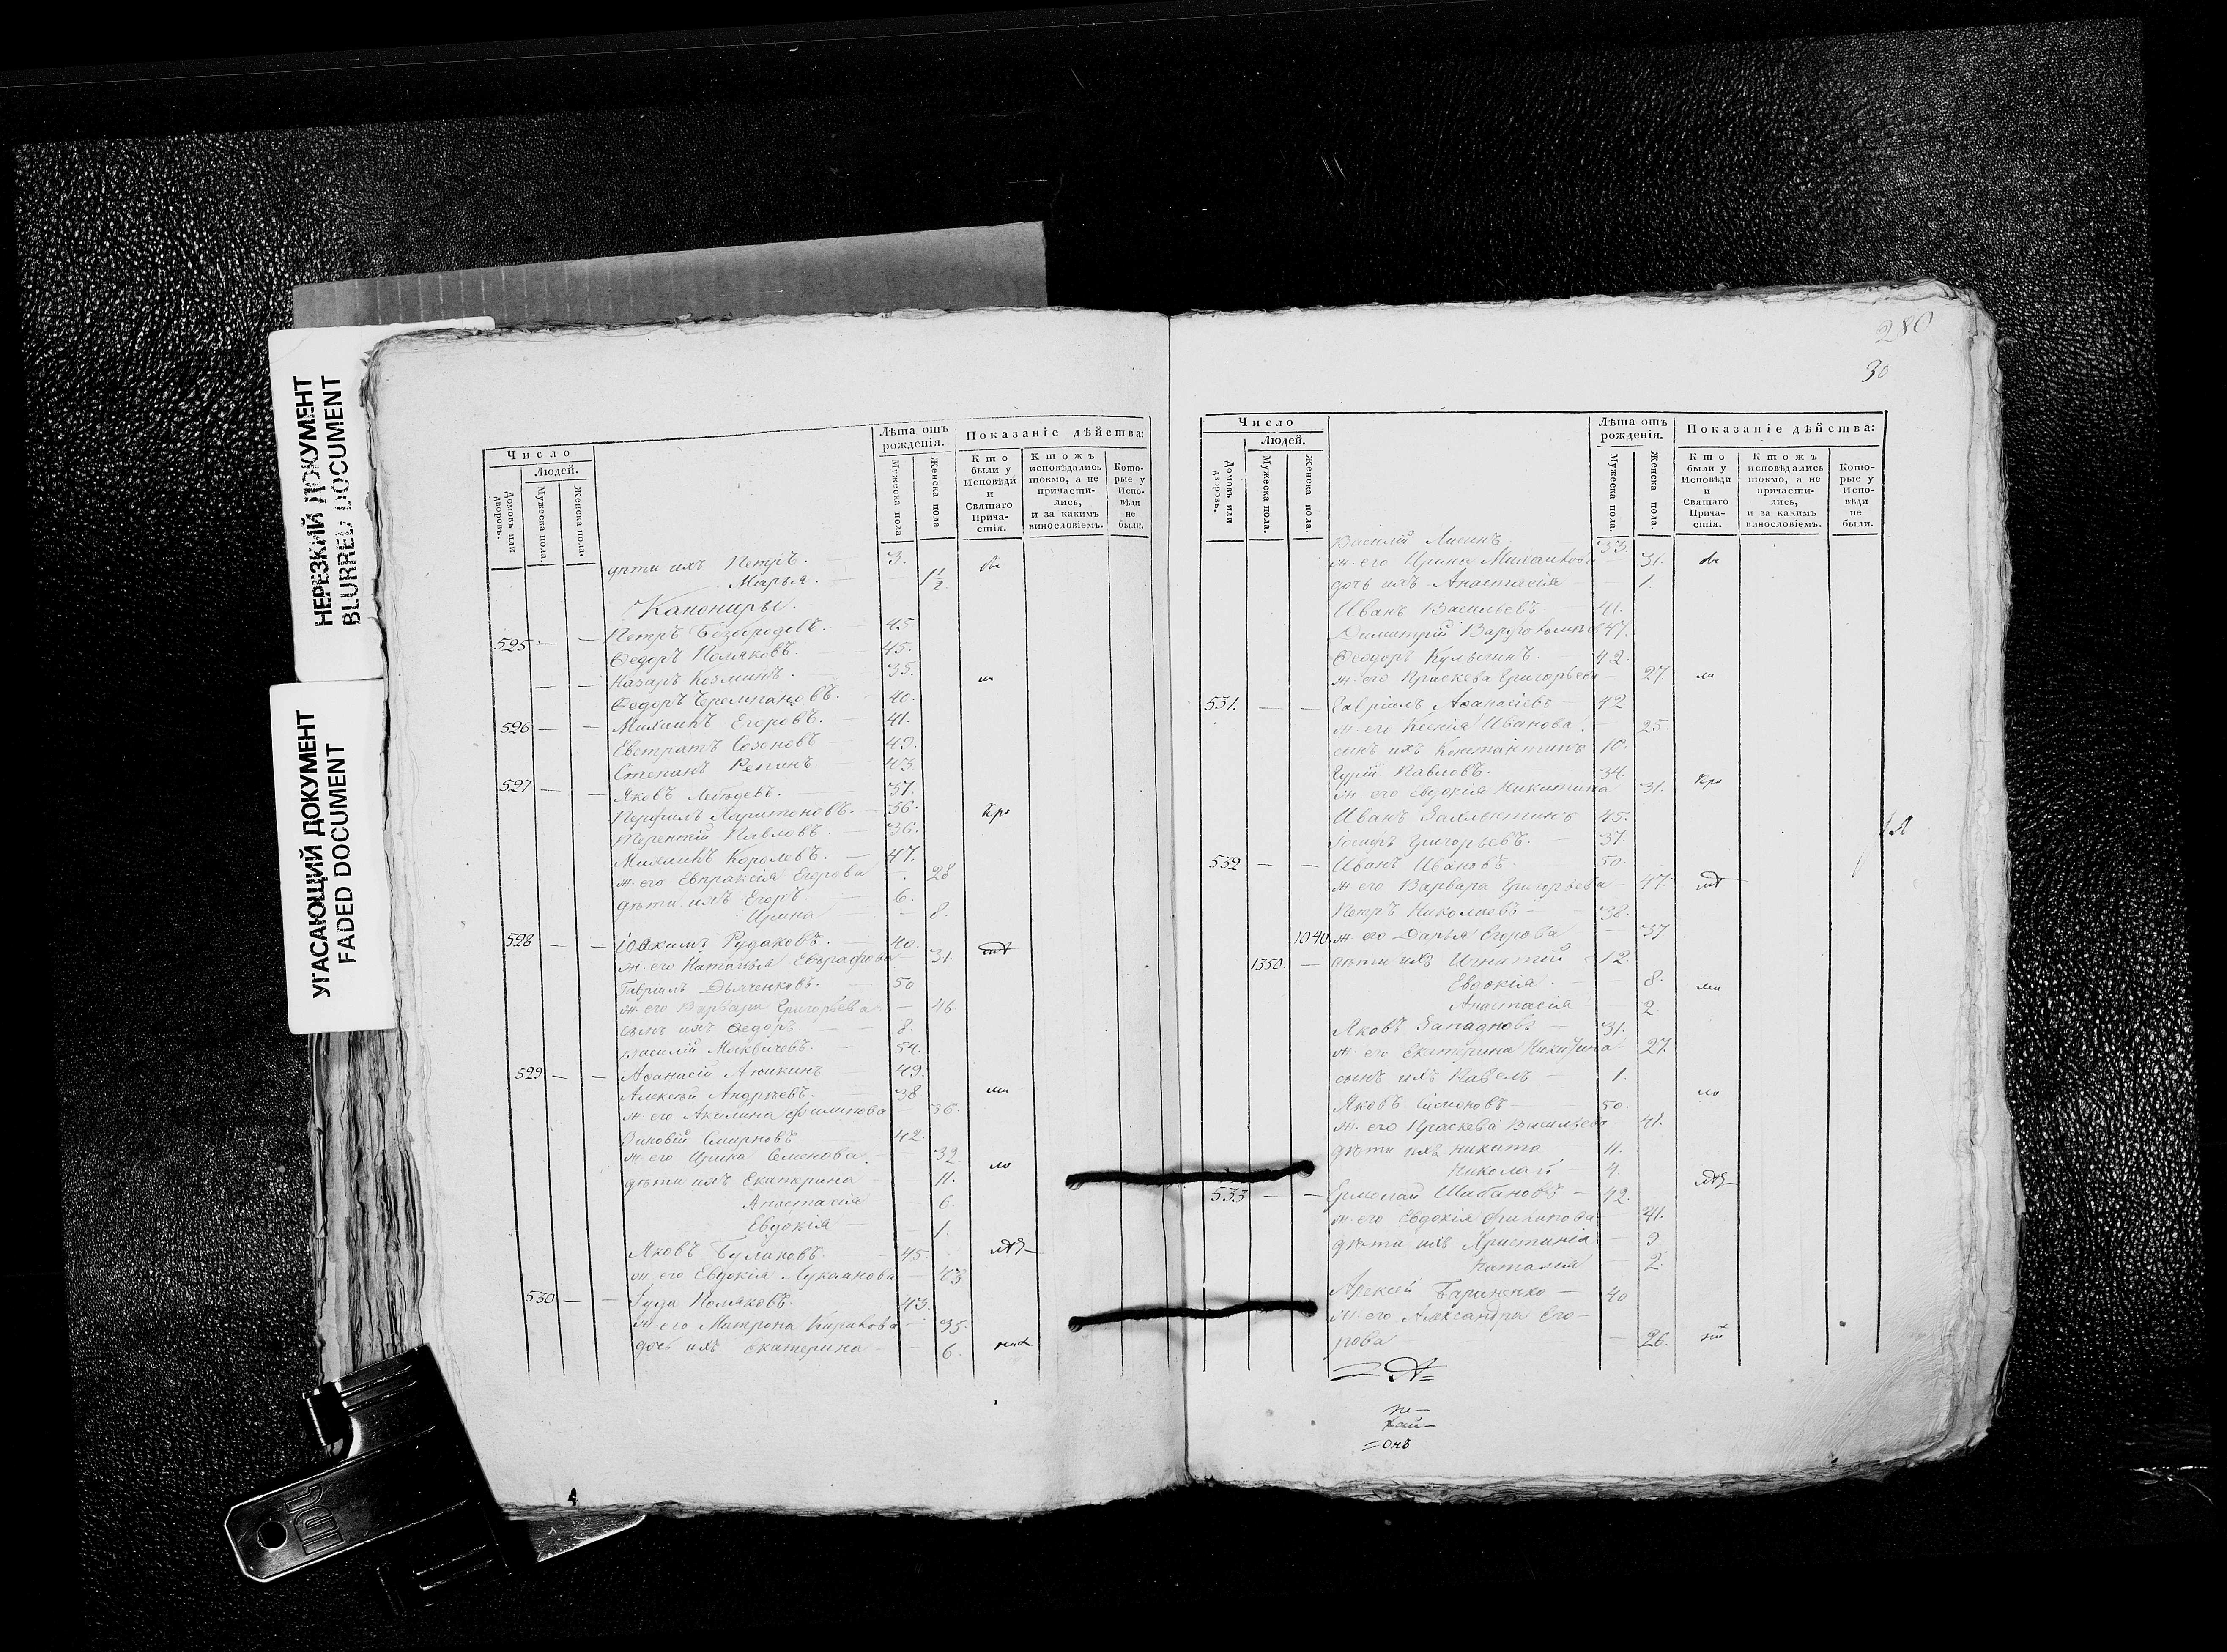 НЕРЕЗКИЙ ДОКУМЕНТ
BLURRED DOCUMENT
УГАСАЮЩИЙ ДОКУМЕНТ
FADED DOCUMENT
Число
Людей.
Домовъ или дворовъ.
Мужеска пола.
Женска пола.
Лѣта отъ рожденія.
Мужеска пола
Женска пола
Показаніе дѣйства:
Кто были у Исповѣди и Святаго Причастія.
Ктожъ исповѣдались токмо, а не причастились, и за какимъ винословіемъ.
Которые у Исповѣди не были.
дѣти ихъ Петръ. 3.
Марья. 1 1/2
Канониры.
525 — — Петръ Безбородовъ. 45
Ѳедоръ Поляковъ. 45.
— — Назаръ Козминъ. 35.
Ѳедоръ 40.
526 — — Михаилъ Егоровъ. 41.
Евстратъ Созоновъ 49.
Степанъ Репинъ 43
527 — — Яковъ Лебедевъ. 37.
Перфилъ Харитоновъ. 36.
Терентій Павловъ. 36.
Михаилъ Королевъ. 47.
ж. его Евпраксія Егорова 28
дѣти ихъ Егоръ. 6.
Ирина 8.
528 — — Іоакимъ Рудаковъ. 40.
ж. его Наталья Евграфова 31.
Гавріилъ Дьяченковъ. 50
ж. его Варвара Григорьева 46.
сынъ ихъ Ѳедоръ. 8.
Василій 54.
529 — — Аѳанасій Аникинъ 49.
Алексѣй Андрѣевъ. 38
ж. его Акилина Филипова 36.
Зиновій Смирновъ 42.
ж. его Ирина Семенова. 32
дѣти ихъ Екатерина 11.
Анастасія 6.
Евдокія 1.
Яковъ Булаковъ. 45.
ж. его Евдокія Лукіанова 43
530 — — Іуда Поляковъ. 43.
ж. его Матрона Кирилова 35.
дочь ихъ Екатерина 6.
280
30
Число
Людей.
Домовъ или дворовъ.
Мужеска пола.
Женска пола.
Лѣта отъ рожденія.
Мужеска пола.
Женска пола.
Показаніе дѣйства:
Кто были у Исповѣди и Святаго Причастія.
Ктожъ исповѣдались токмо, а не причастились, и за какимъ винословіемъ.
Которые у Исповѣди не были.
Василій Лисинъ 33.
ж. его Ирина Михаилова 31.
дочь ихъ Анастасія 1.
Иванъ Васильевъ 41.
Димитрій 47.
Ѳеодоръ 42.
ж. его Праскева Григорьева 27.
531. — — Гавріилъ Аѳанасіевъ 42
ж. его Ксенія Иванова. 25.
сынъ ихъ Константинъ 10.
Гурій Павловъ. 34.
ж. его Евдокія Никитина 31.
Иванъ 45.
Іосифъ Григорьевъ. 37.
532 — — Иванъ Ивановъ. 50.
ж. его Варвара Григорьева 47.
Петръ Николаевъ 38.
1040 ж. его Дарья Егорова 37
1550. — дѣти ихъ Игнатій 12.
Евдокія. 8.
Анастасія 2
Яковъ Западновъ 31.
ж. его Екатерина Никитина 27.
сынъ ихъ Павелъ 1.
Яковъ Симоновъ 50.
ж. его Праскева Васильева 41.
дѣти ихъ Никита 11.
Николай 4.
533 — — Ермолай Шабановъ 42.
ж. его Евдокія Филипова 41.
дѣти ихъ Христинія 9
Наталія 2.
Алексѣй 40
ж. его Александра Его-
рова 26.